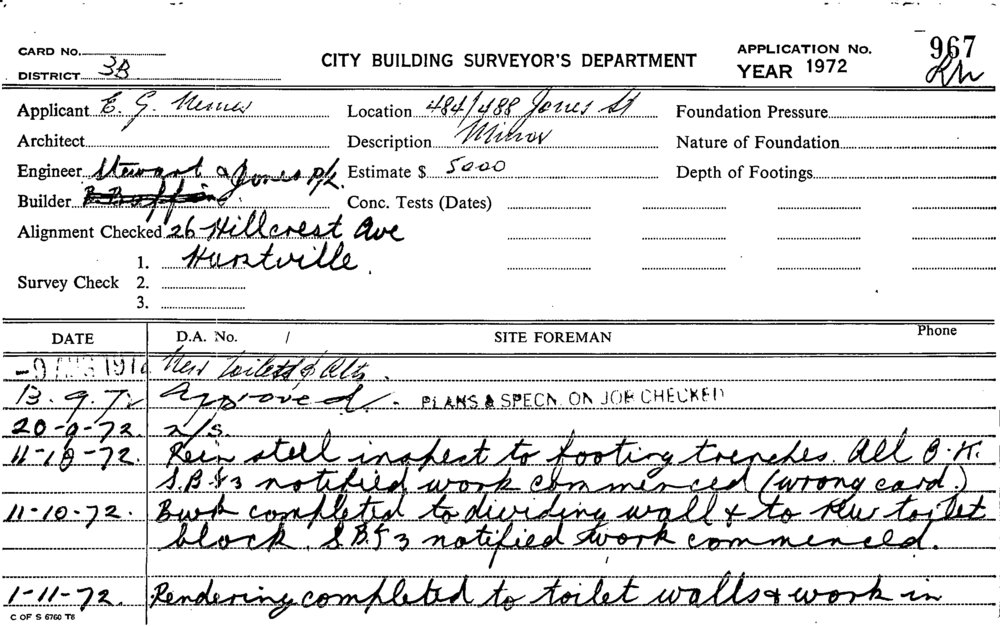 CARD No.
DISTRICT 3B
CITY BUILDING SURVEYOR'S DEPARTMENT
APPLICATION No. 967
YEAR 1972
Applicant E. G.
Location 484/488 Jones St
Foundation Pressure
Architect
Description Minor
Nature of Foundation
Engineer Stewart & Jones P/L.
Estimate $ 5000
Depth of Footings
Builder
Conc. Tests (Dates)
Alignment Checked 26 Hillcrest Ave
1. Hurstville.
Survey Check 2.
3.
DATE D.A. No. / SITE FOREMAN Phone
-9 AUG 1972 New toilets & Alts.
13.9.72 Approved. - PLANS & SPECN. ON JOB CHECKED
20-9-72. n/s.
11-10-72. Rein steel inspect to footing trenches. All O.K.
S.B.&3 notified work commenced (wrong card.)
11-10-72. Bwk completed to dividing wall & to new toilet
block. S.B.&3 notified work commenced.
1-11-72. Rendering completed to toilet walls & work in
C OF S 6760 T6